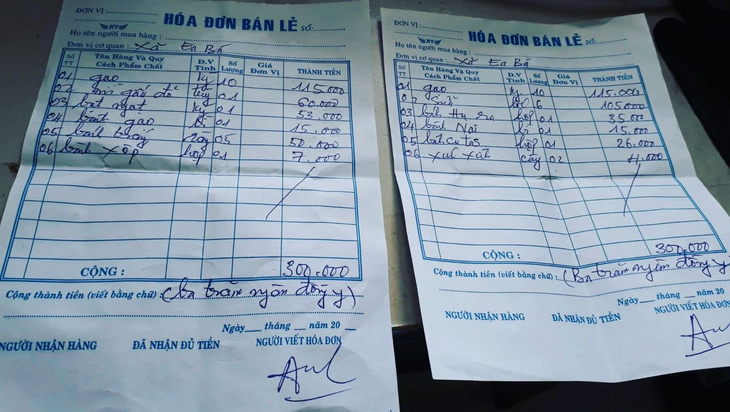 ĐƠN VỊ
HÓA ĐƠN BÁN LẺ SỐ:
Họ tên người mua hàng :
Đơn vị cơ quan : Xã Ea Bá
SỐ TT Tên Hàng Và Quy Cách Phẩm Chất Đ.V Tính Số Lượng Giá Đơn Vị THÀNH TIỀN
01 gạo kg 10 115.000
02 mì gấu đỏ 01 60.000
03 bột ngọt kg 01 53.000
04 bánh gạo 01 15.000
05 bánh 05 50.000
06 bánh xốp hộp 01 7.000
CỘNG : 300.000
Cộng thành tiền (viết bằng chữ) (ba trăm ngàn đồng y)
Ngày tháng năm 20
NGƯỜI NHẬN HÀNG ĐÃ NHẬN ĐỦ TIỀN NGƯỜI VIẾT HÓA ĐƠN
ĐƠN VỊ :
HÓA ĐƠN BÁN LẺ SỐ:
Họ tên người mua hàng :
Đơn vị cơ quan : Xã Ea Bá
SỐ TT Tên Hàng Và Quy Cách Phẩm Chất Đ.V Tính Số Lượng Giá Đơn Vị THÀNH TIỀN
01 gạo kg 10 115.000
02 6 105.000
03 bánh hộp 01 35.000
04 bánh 01 15.000
05 hộp 01 26.000
06 xúc xích cây 02 4.000
CỘNG : 300.000
Cộng thành tiền (viết bằng chữ) (Ba trăm ngàn đồng y)
Ngày tháng năm 20
NGƯỜI NHẬN HÀNG ĐÃ NHẬN ĐỦ TIỀN NGƯỜI VIẾT HÓA ĐƠN